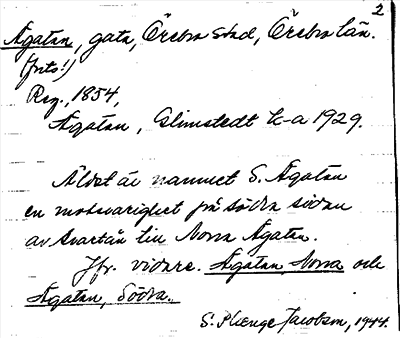 2
Ågatan, gata, Örebro stad, Örebro län.
(forts!)
Reg., 1854,
Ågatan, Elmstedt k-a 1929.
Äldst är namnet S. Ågatan
en motsvarighet på södra sidan
av Svartån till Norra Ågatan.
Jfr. vidare. Ågatan, Norra och
Ågatan, Södra.
S. Plenge Jacobson, 1944.